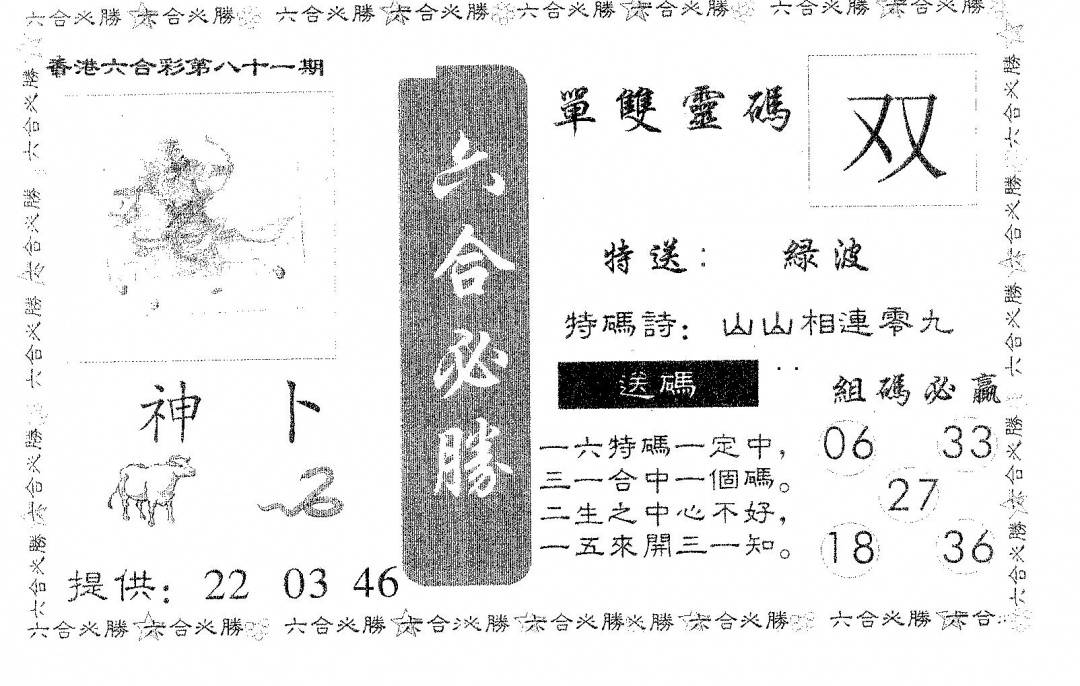 六合必勝 六合必勝 六合必勝 六合必勝 六合必勝 六合必勝
香港六合彩第八十一期
六合必勝
單雙靈碼
双
特送： 緑波
特碼詩： 山山相連零九
送碼
組碼必贏
一六特碼一定中，
三一合中一個碼。
二生之中心不好，
一五來開三一知。
06 33
27
18 36
神 卜
提供： 22 03 46
六合必勝 六合必勝 六合必勝 六合必勝 六合必勝 六合必勝 六合必勝 六合
六合必勝 六合必勝 六合必勝 六合必勝 六合必勝
六合必勝 六合必勝 六合必勝 六合必勝 六合必勝